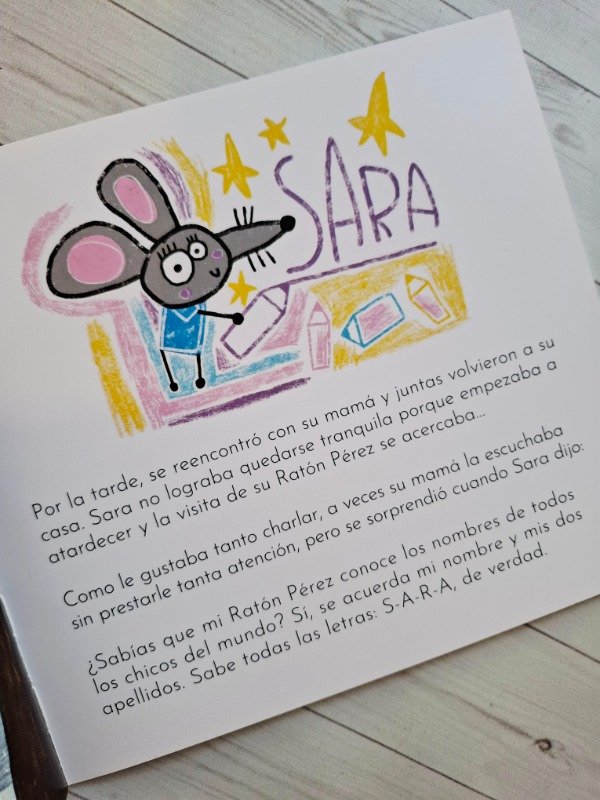 SARA
Por la tarde, se reencontró con su mamá y juntas volvieron a su
casa. Sara no lograba quedarse tranquila porque empezaba a
atardecer y la visita de su Ratón Pérez se acercaba...
Como le gustaba tanto charlar, a veces su mamá la escuchaba
sin prestarle tanta atención, pero se sorprendió cuando Sara dijo:
¿Sabías que mi Ratón Pérez conoce los nombres de todos
los chicos del mundo? Sí, se acuerda mi nombre y mis dos
apellidos. Sabe todas las letras: S-A-R-A, de verdad.